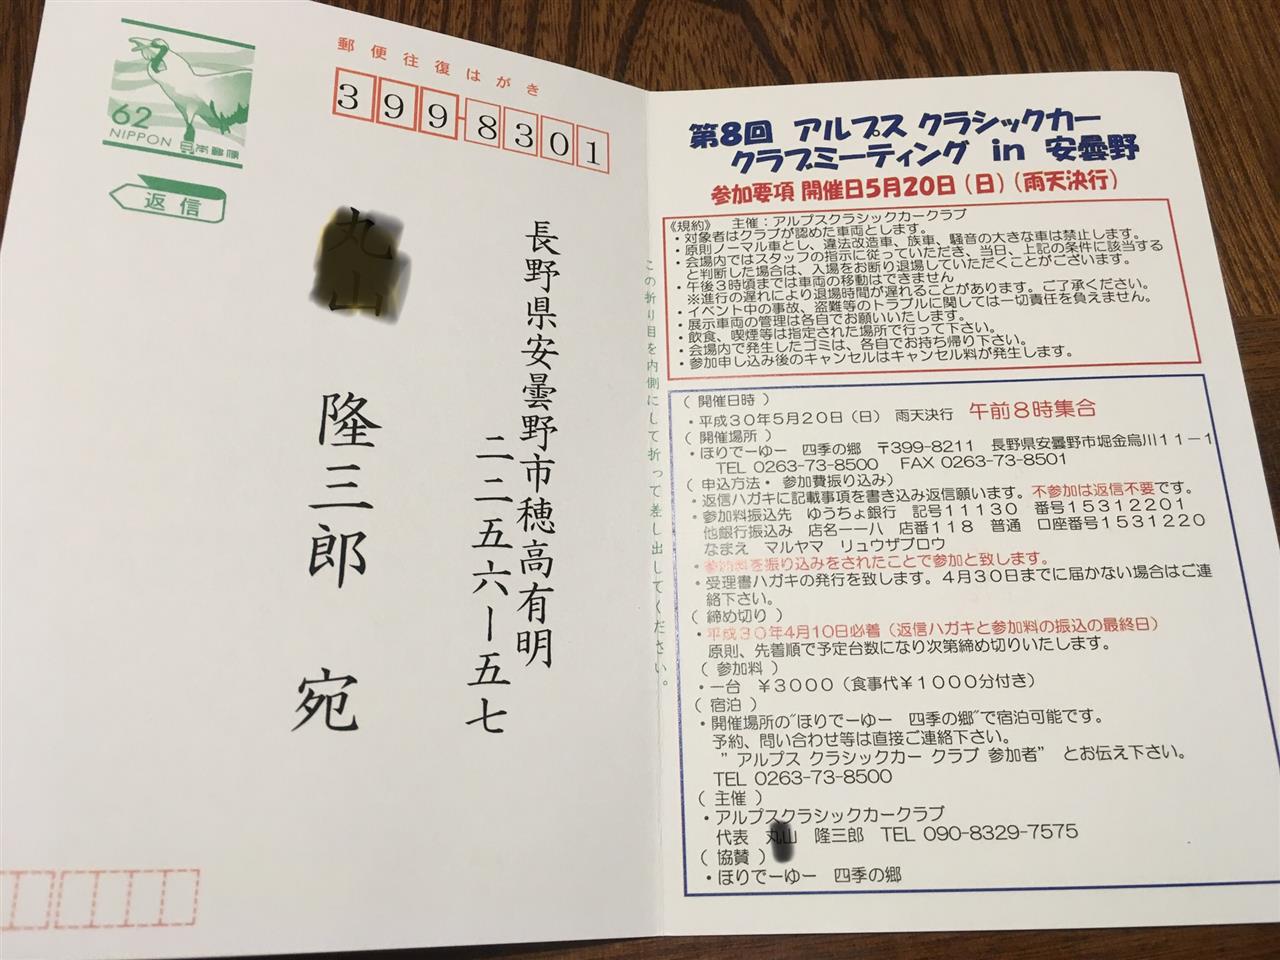 郵便往復はがき
399-8301
62
NIPPON
日本郵便
返信
長野県安曇野市穂高有明
二二五六ー五七
丸山 隆三郎 宛
この折り目を内側にして折って差し出してください。
第8回 アルプス クラシックカー
クラブミーティング in 安曇野
参加要項 開催日5月20日(日)(雨天決行)
《規約》 主催:アルプスクラシックカークラブ
・対象者はクラブが認めた車両とします。
・原則ノーマル車とし、違法改造車、族車、騒音の大きな車は禁止します。
・会場内ではスタッフの指示に従っていただき、当日、上記の条件に該当する
と判断した場合は、入場をお断り退場していただくことがございます。
・午後3時頃までは車両の移動はできません
※進行の遅れにより退場時間が遅れることがあります。ご了承ください。
・イベント中の事故、盗難等のトラブルに関しては一切責任を負えません。
・展示車両の管理は各自でお願いいたします。
・飲食、喫煙等は指定された場所で行って下さい。
・会場内で発生したゴミは、各自でお持ち帰り下さい。
・参加申し込み後のキャンセルはキャンセル料が発生します。
( 開催日時 )
・平成30年5月20日(日) 雨天決行 午前8時集合
( 開催場所 )
・ほりでーゆー 四季の郷 〒399-8211 長野県安曇野市堀金烏川11-1
TEL 0263-73-8500 FAX 0263-73-8501
( 申込方法・ 参加費振り込み)
・返信ハガキに記載事項を書き込み返信願います。不参加は返信不要です。
・参加料振込先 ゆうちょ銀行 記号11130 番号15312201
他銀行振込み 店名一一八 店番118 普通 口座番号1531220
なまえ マルヤマ リュウザブロウ
・参加料を振り込みをされたことで参加と致します。
・受理書ハガキの発行を致します。4月30日までに届かない場合はご連
絡下さい。
( 締め切り )
・平成30年4月10日必着(返信ハガキと参加料の振込の最終日)
原則、先着順で予定台数になり次第締め切りいたします。
( 参加料 )
・一台 ¥3000(食事代¥1000分付き)
( 宿泊 )
・開催場所の"ほりでーゆー 四季の郷"で宿泊可能です。
予約、問い合わせ等は直接ご連絡下さい。
" アルプス クラシックカー クラブ 参加者" とお伝え下さい。
TEL 0263-73-8500
( 主催 )
・アルプスクラシックカークラブ
代表 丸山 隆三郎 TEL 090-8329-7575
( 協賛 )
・ほりでーゆー 四季の郷